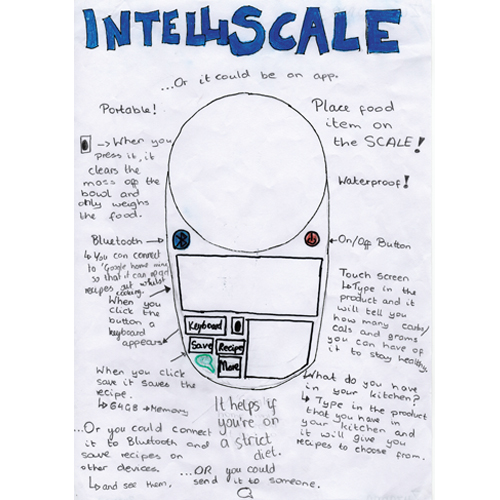 INTELLISCALE
...Or it could be an app.
Portable!
Place food
item on
the SCALE!
→ When you
press it, it
clears the
mass off the
bowl and
only weighs
the food.
Waterproof!
Bluetooth →
← On/Off Button
↳ You can connect
to 'Google home mini'
so that it can read
recipes out whilst
cooking.
Touch Screen
↳ Type in the
product and it
will tell you
how many carbs/
cals and grams
you can have of
it to stay healthy.
When you
click the
button a
keyboard
appears
Keyboard
Save
Recipe
More
When you click
save it saves the
recipe.
↳ 64GB → Memory
It helps if
you're on
a strict
diet.
What do you have
in your kitchen?
↳ Type in the product
that you have in
your kitchen and
it will give you
recipes to choose from.
...Or you could connect
it to Bluetooth and
save recipes on
other devices.
↳ and see them.
...OR you could
send it to someone.